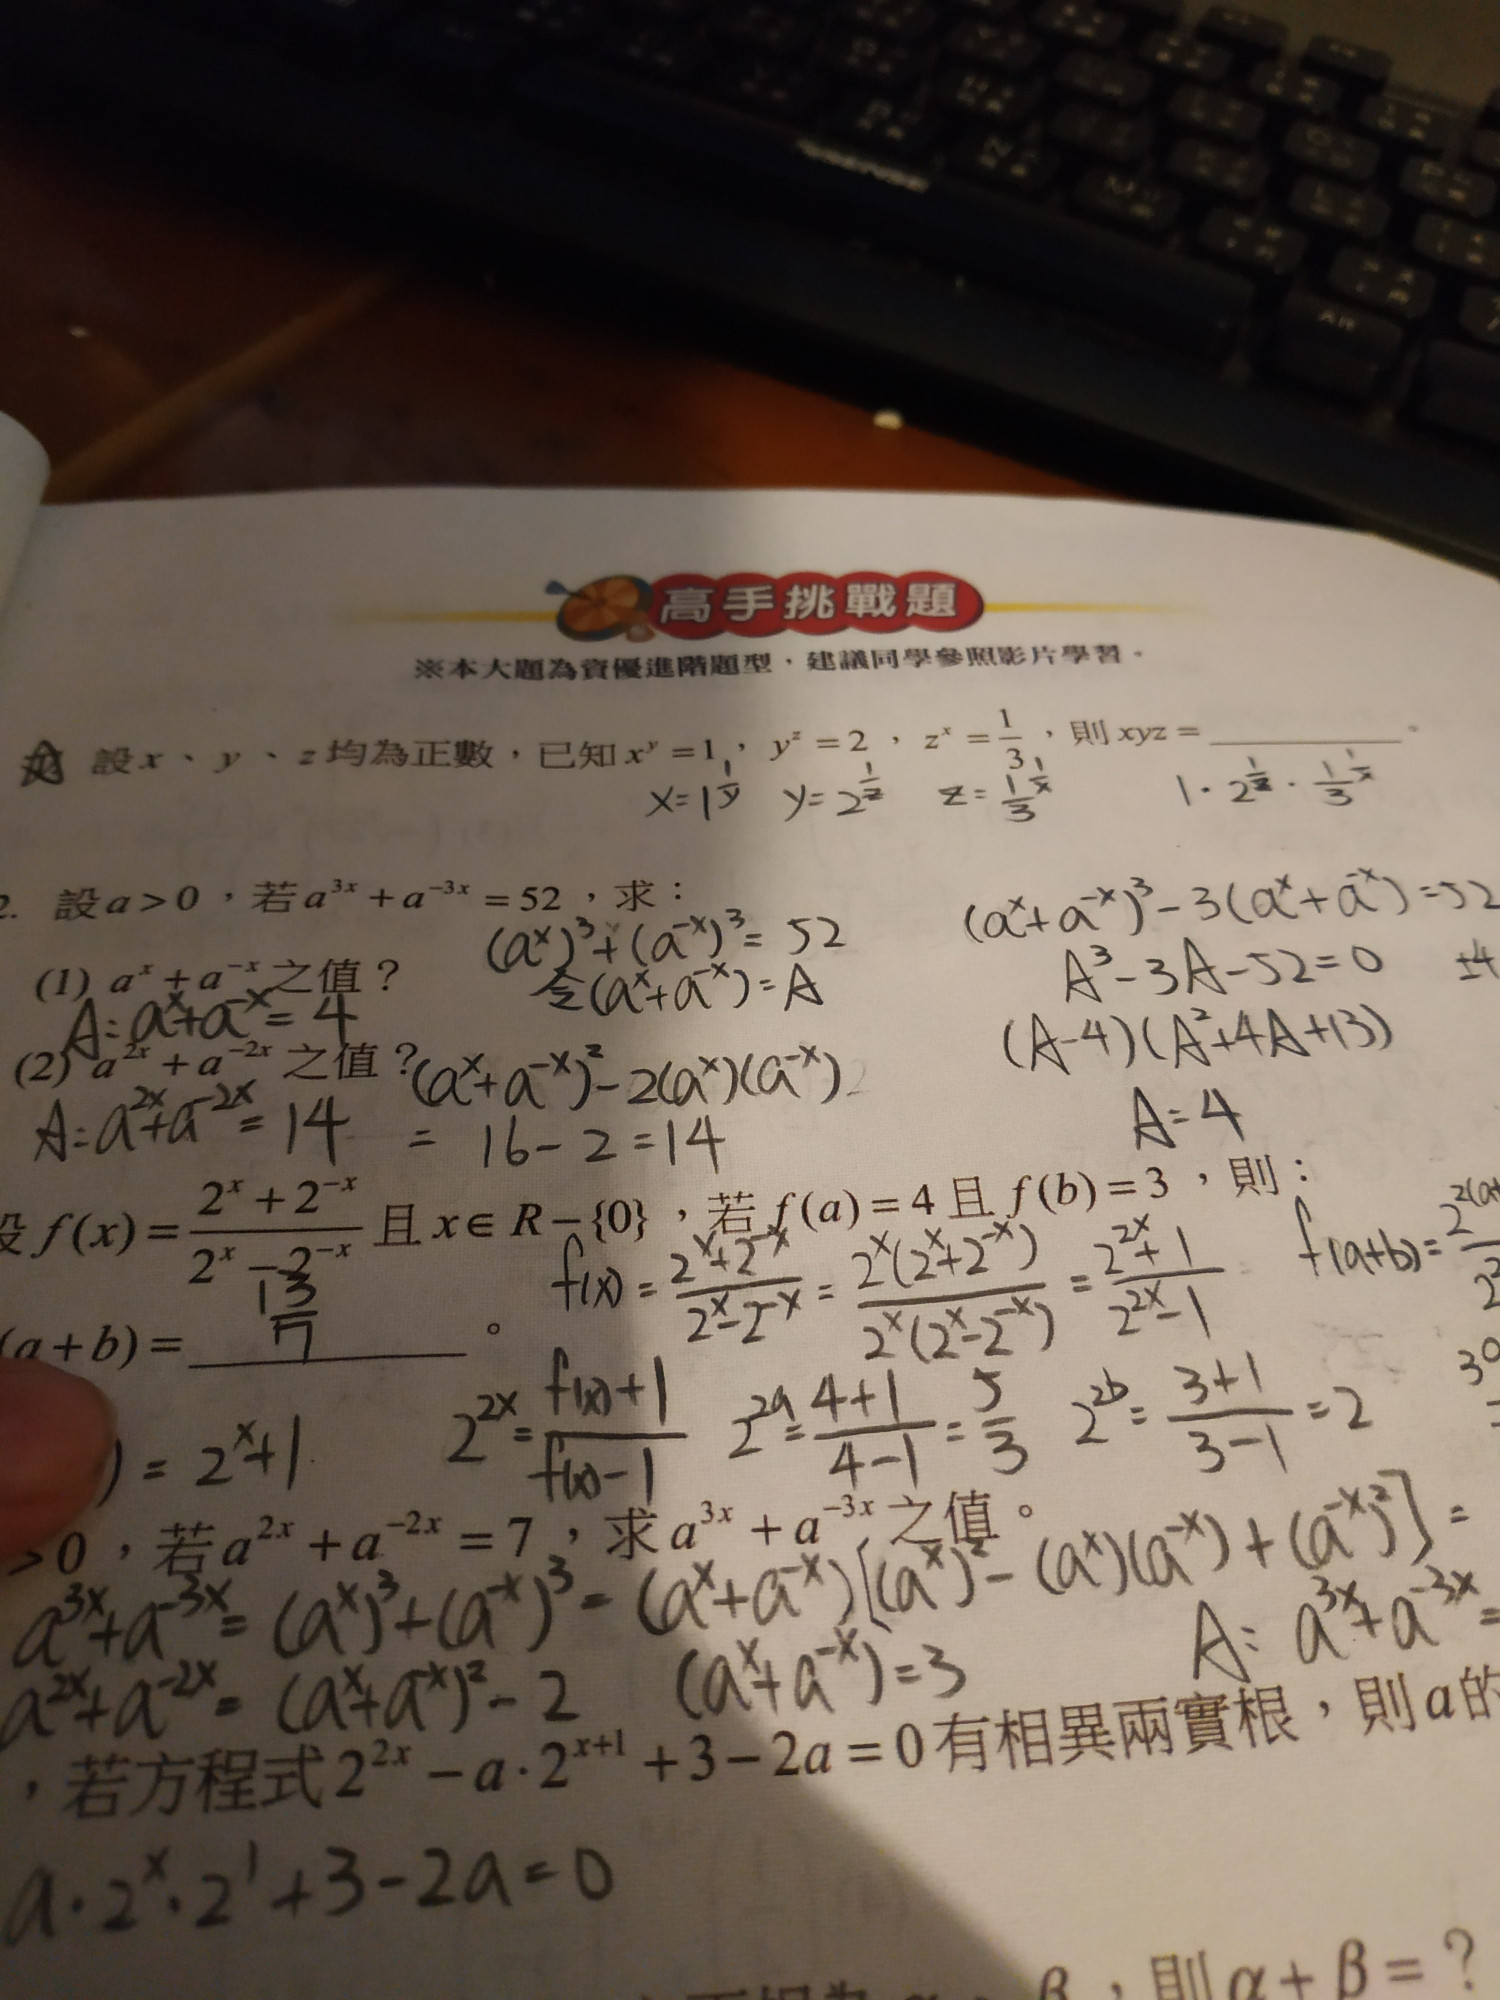 高手挑戰題
※本大題為資優進階題型，建議同學參照影片學習。
設x、y、z均為正數，已知x^y=1，y^z=2，z^x=1/3，則xyz=________。
x=1^(1/y) y=2^(1/z) z=1/3^(1/x) 1·2^(1/z)·1/3^(1/x)
2. 設a>0，若a^(3x)+a^(-3x)=52，求：
(a^x)^3+(a^(-x))^3=52 (a^x+a^(-x))^3-3(a^x+a^(-x))=52
(1) a^x+a^(-x)之值？ 令(a^x+a^(-x))=A A^3-3A-52=0 ±4
A:a^x+a^(-x)=4 (A-4)(A^2+4A+13)
(2) a^(2x)+a^(-2x)之值？ (a^x+a^(-x))^2-2(a^x)(a^(-x))
A:a^(2x)+a^(-2x)=14 =16-2=14 A=4
設f(x)=(2^x+2^(-x))/(2^x-2^(-x))且x∈R-{0}，若f(a)=4且f(b)=3，則：
f(x)=(2^x+2^(-x))/(2^x-2^(-x))=2^x(2^x+2^(-x))/2^x(2^x-2^(-x))=(2^(2x)+1)/(2^(2x)-1) f(a+b)=
(a+b)=13/7。
)=2^x+1 2^(2x)=(f(x)+1)/(f(x)-1) 2^(2a)=(4+1)/(4-1)=5/3 2^(2b)=(3+1)/(3-1)=2
>0，若a^(2x)+a^(-2x)=7，求a^(3x)+a^(-3x)之值。
a^(3x)+a^(-3x)=(a^x)^3+(a^(-x))^3=(a^x+a^(-x))[(a^x)^2-(a^x)(a^(-x))+(a^(-x))^2]=
A:a^(3x)+a^(-3x)=
a^(2x)+a^(-2x)=(a^x+a^(-x))^2-2 (a^x+a^(-x))=3
，若方程式2^(2x)-a·2^(x+1)+3-2a=0有相異兩實根，則a的
a·2^x·2^1+3-2a=0
β，則α+β=？